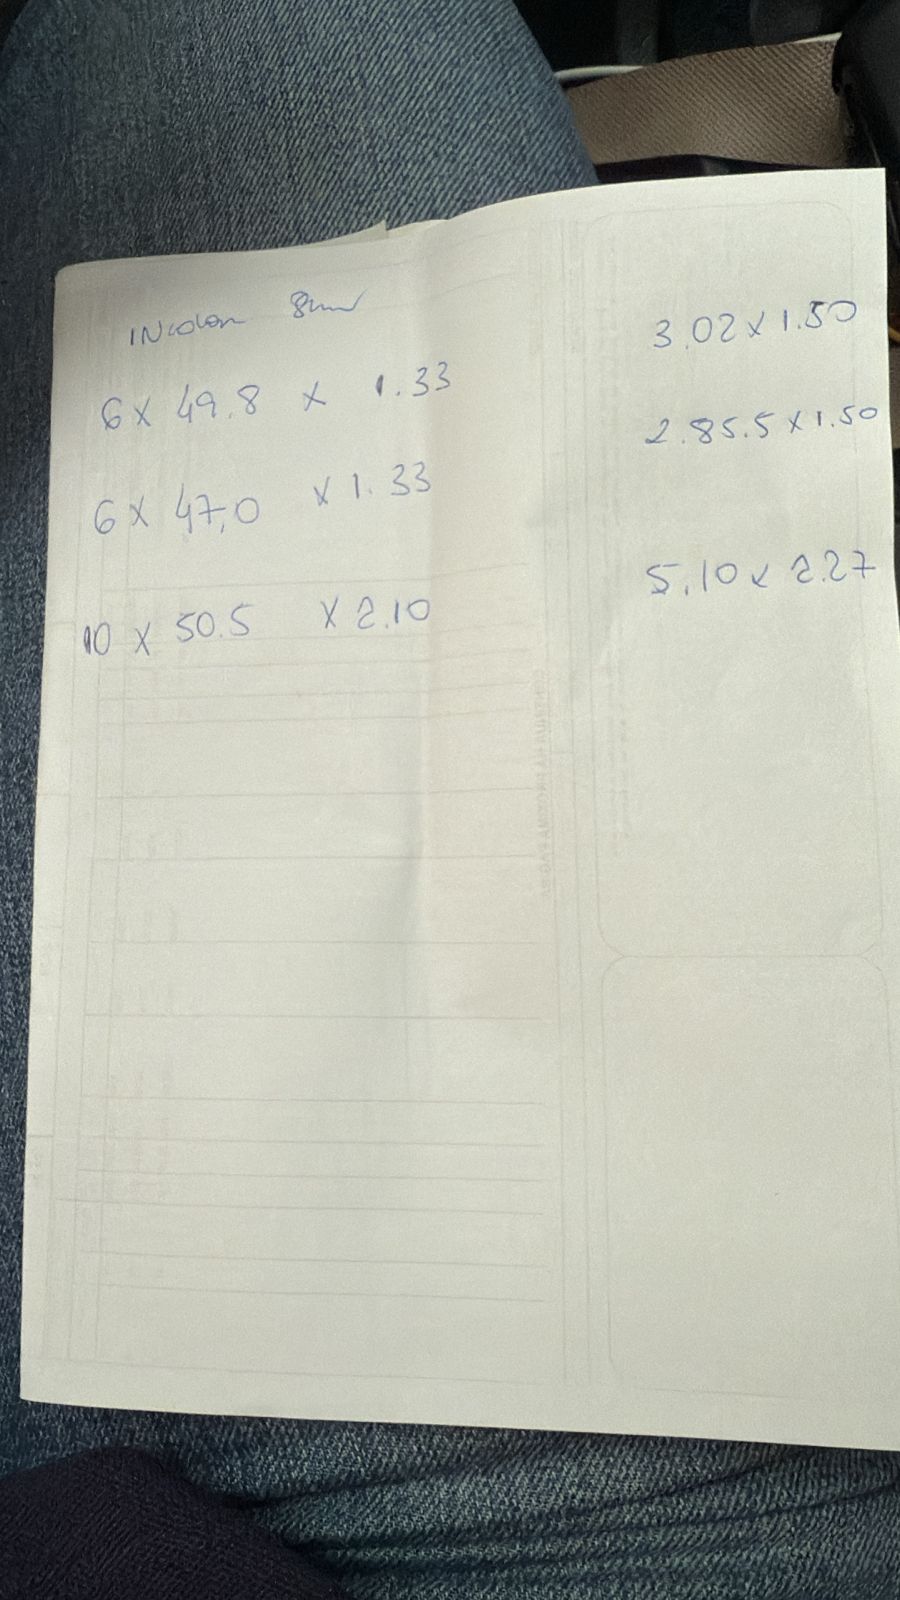 INcolor 8mm
6 x 49.8 x 1.33
6 x 47,0 x 1.33
10 x 50.5 x 2.10
3.02 x 1.50
2.85.5 x 1.50
5.10 x 2.27